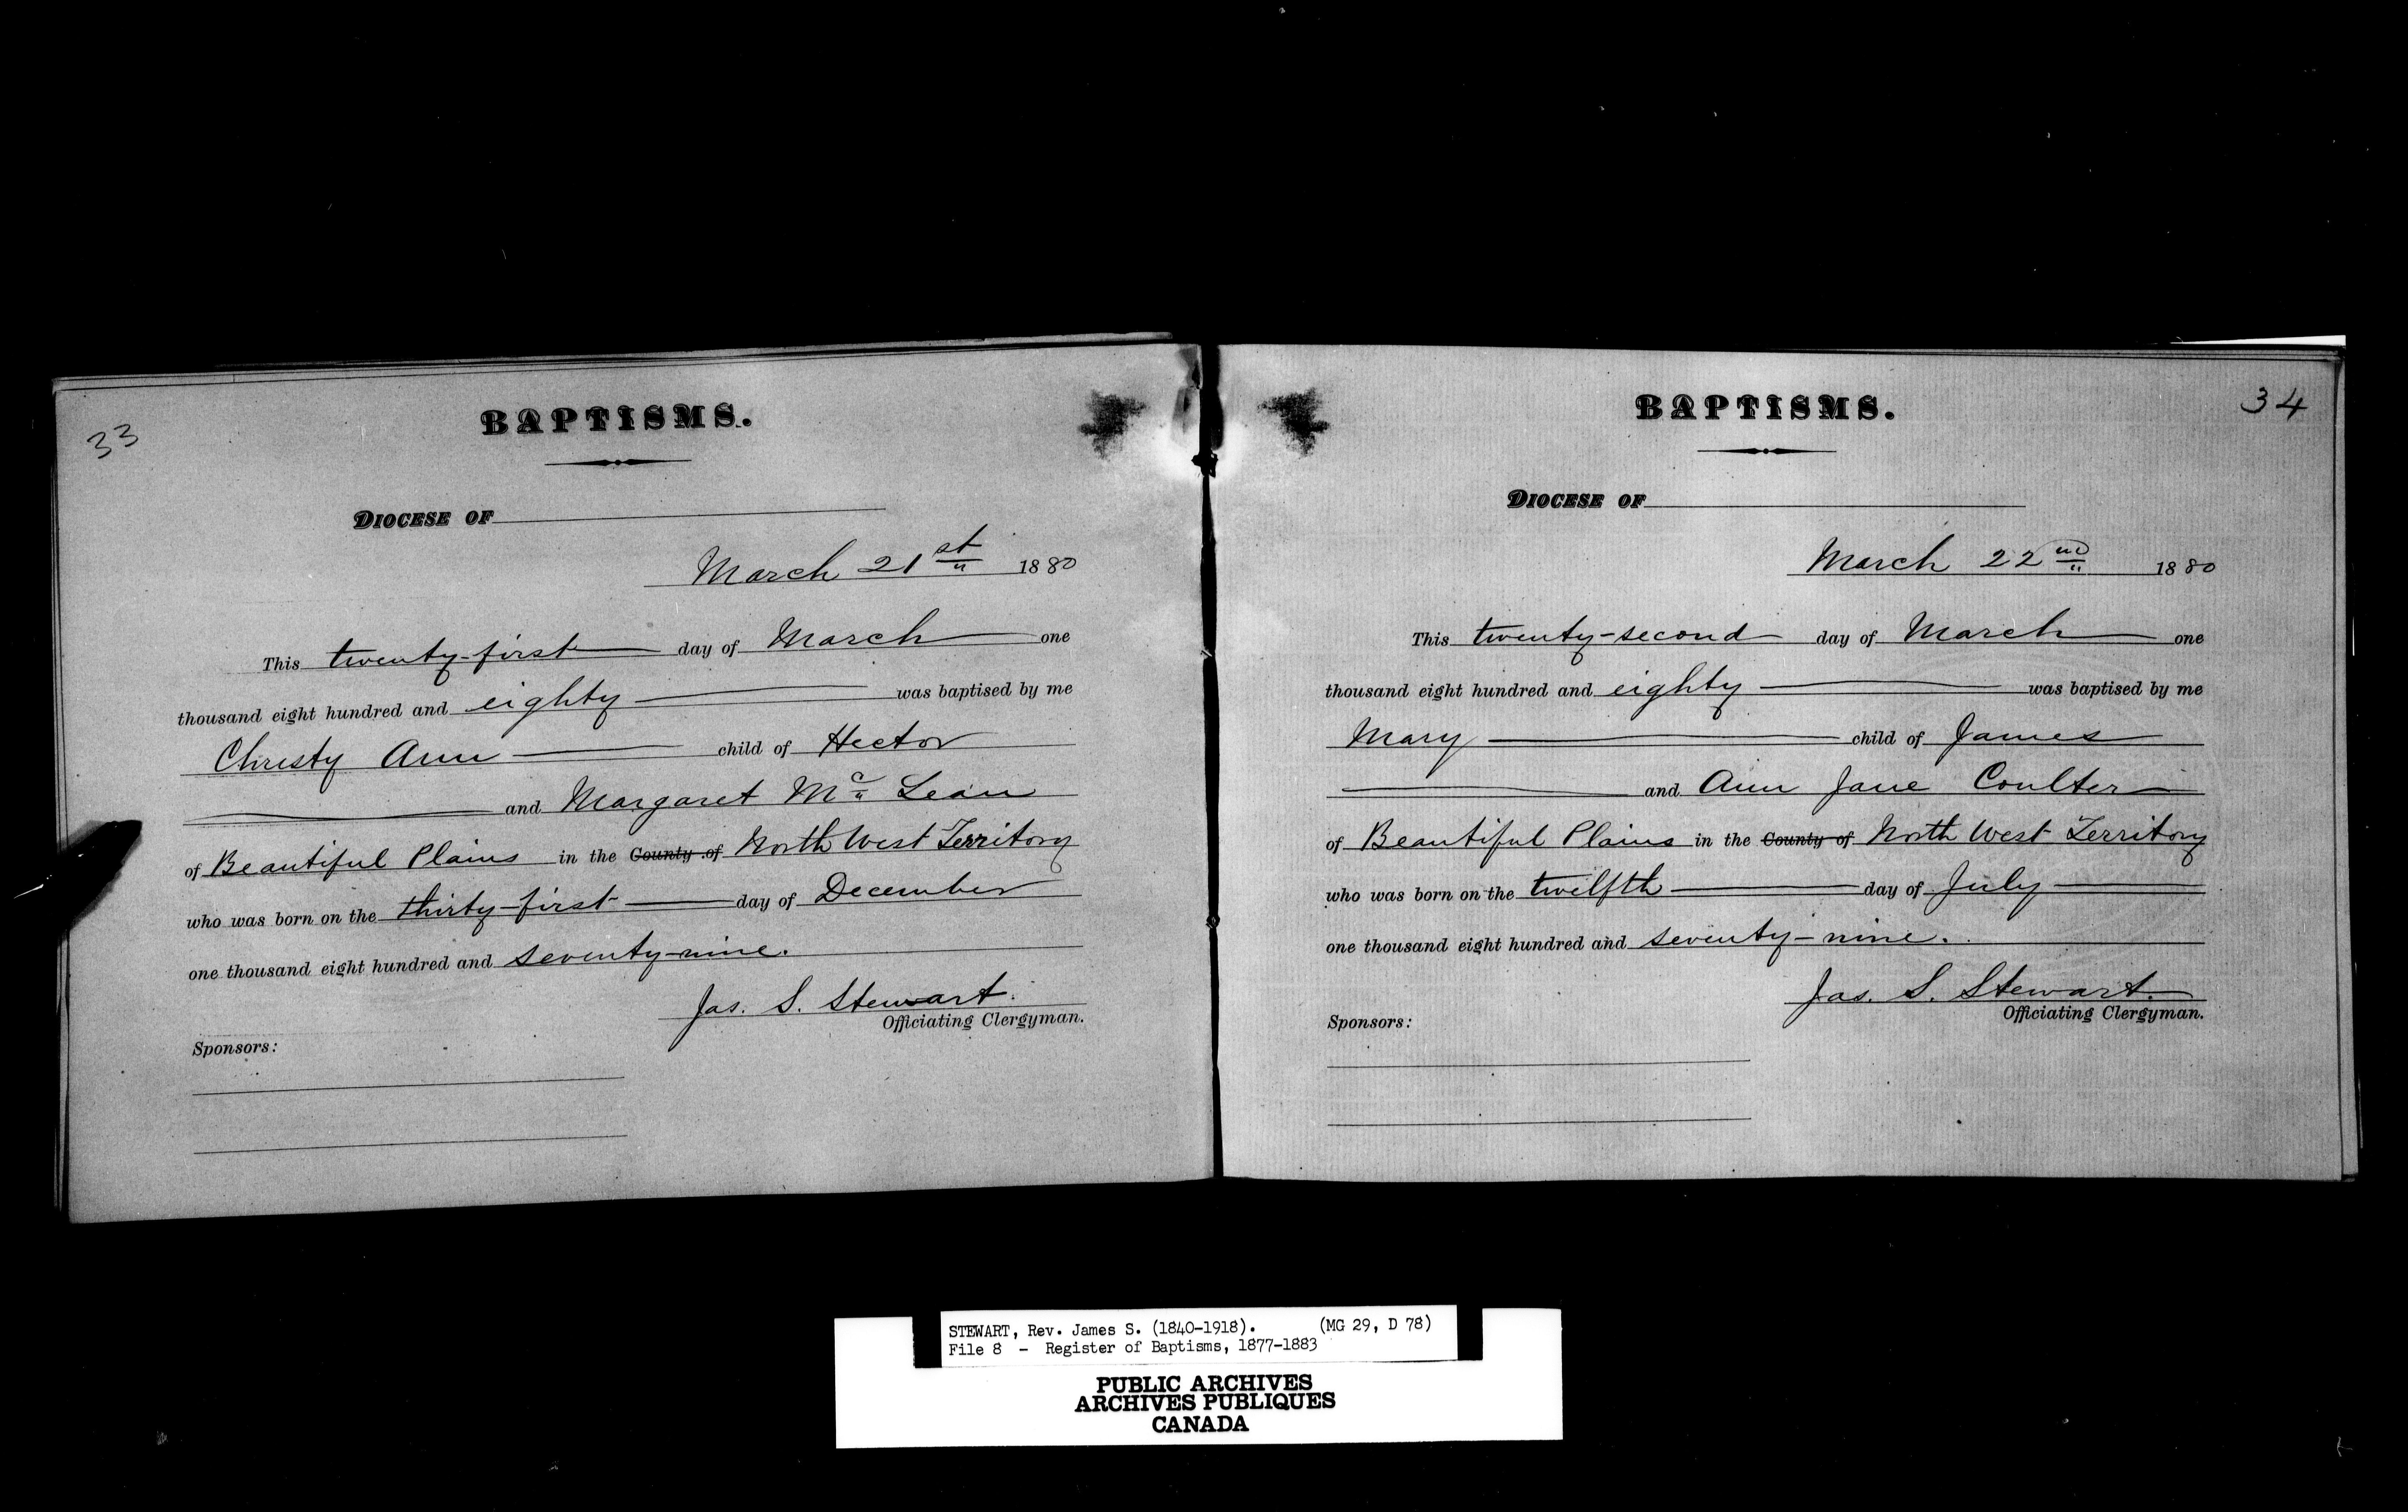 33
BAPTISMS.
DIOCESE OF
March 21st 1880
This twenty-first day of March one
thousand eight hundred and eighty was baptised by me
Christy Ann child of Hector
and Margaret Mc Lean
of Beautiful Plains in the County of North West Territory
who was born on the thirty-first day of December
one thousand eight hundred and seventy-nine.
Jas. S. Stewart.
Officiating Clergyman.
Sponsors:
34
BAPTISMS.
DIOCESE OF
March 22nd 1880
This twenty-second day of March one
thousand eight hundred and eighty was baptised by me
Mary child of James
and Ann Jane Coulter
of Beautiful Plains in the County of North West Territory
who was born on the twelfth day of July
one thousand eight hundred and seventy-nine.
Jas. S. Stewart.
Officiating Clergyman.
Sponsors:
STEWART, Rev. James S. (1840-1918). (MG 29, D 78)
File 8 - Register of Baptisms, 1877-1883
PUBLIC ARCHIVES
ARCHIVES PUBLIQUES
CANADA